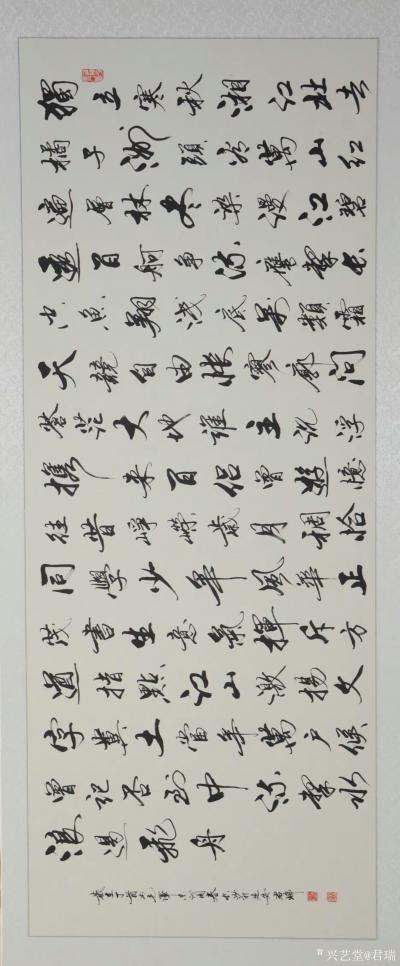 獨立寒秋湘江北去
橘子洲頭看萬山紅
遍層林盡染漫江碧
透百舸争流鷹擊長
空魚翔淺底萬類霜
天競自由悵寥廓問
蒼茫大地誰主沉浮
携来百侣曾遊憶
往昔崢嶸歲月稠恰
同學少年風華正
茂書生意氣揮斥方
遒指點江山激揚文
字糞土當年萬户侯
曾記否到中流擊水
浪遏飛舟
歲在丁酉
兴艺堂@君瑞